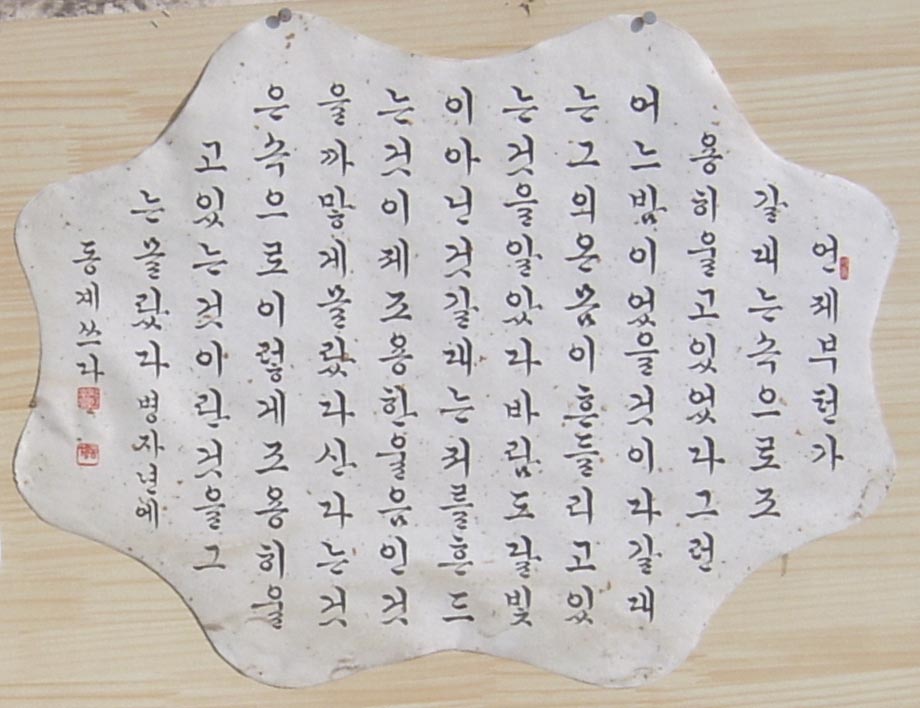 언제부턴가
갈대는속으로조
용히울고있었다그런
어느밤이었을것이다갈대
는그의온몸이흔들리고있
는것을알았다바람도달빛
이아닌것갈대는저를흔드
는것이제조용한울음인것
을까맣게몰랐다산다는것
은속으로이렇게조용히울
고있는것이란것을그
는몰랐다병자년에
동계쓰다